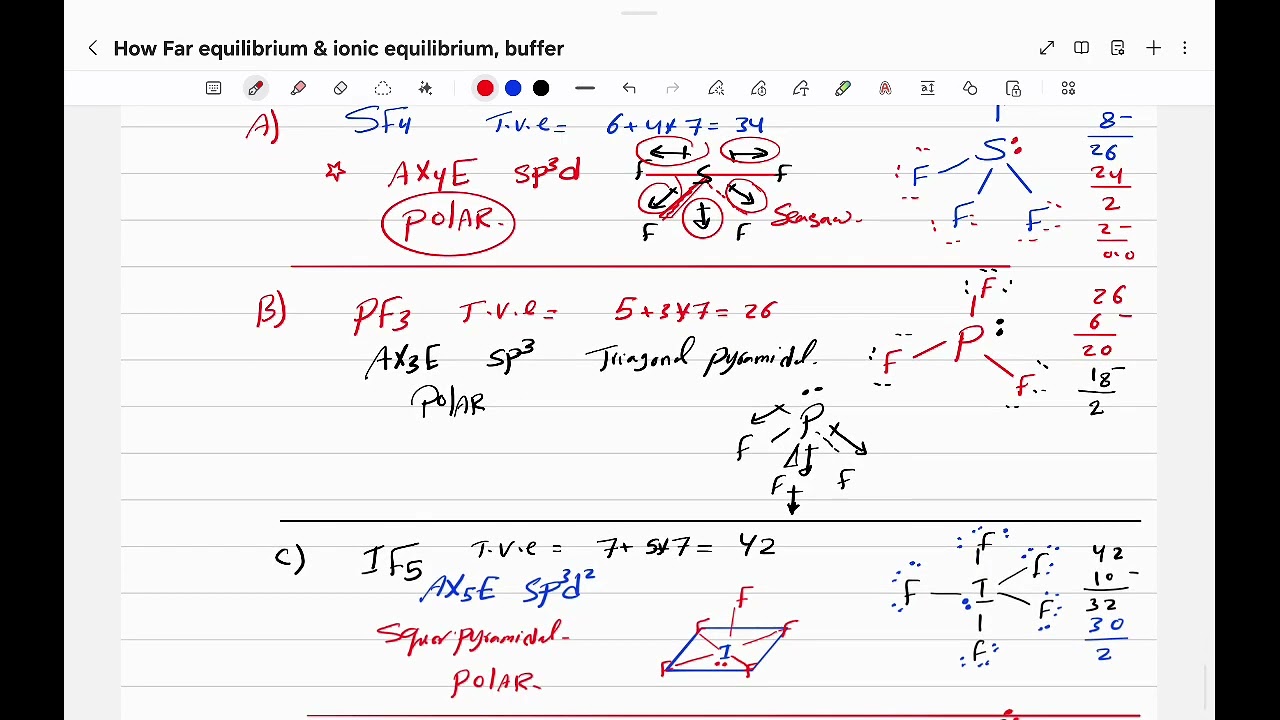 How Far equilibrium & ionic equilibrium, buffer
A) SF4 T.v.e = 6+4*7= 34
☆ AX4E sp³d
POLAR.
F S F
F F
Seasaw.
S
F F F
8-
26
24
2
2-
0.0
B) PF3 T.v.e = 5+3*7= 26
AX3E sp³ Triagonal pyramidal.
POLAR
P
F F F
F
P
F F
26
6-
20
18-
2
C) IF5 T.v.e = 7+ 5*7= 42
AX5E sp³d²
Squar pyramidal.
POLAR.
F
F F
I
F F
F
F
F I
F
F
42
10-
32
30
2